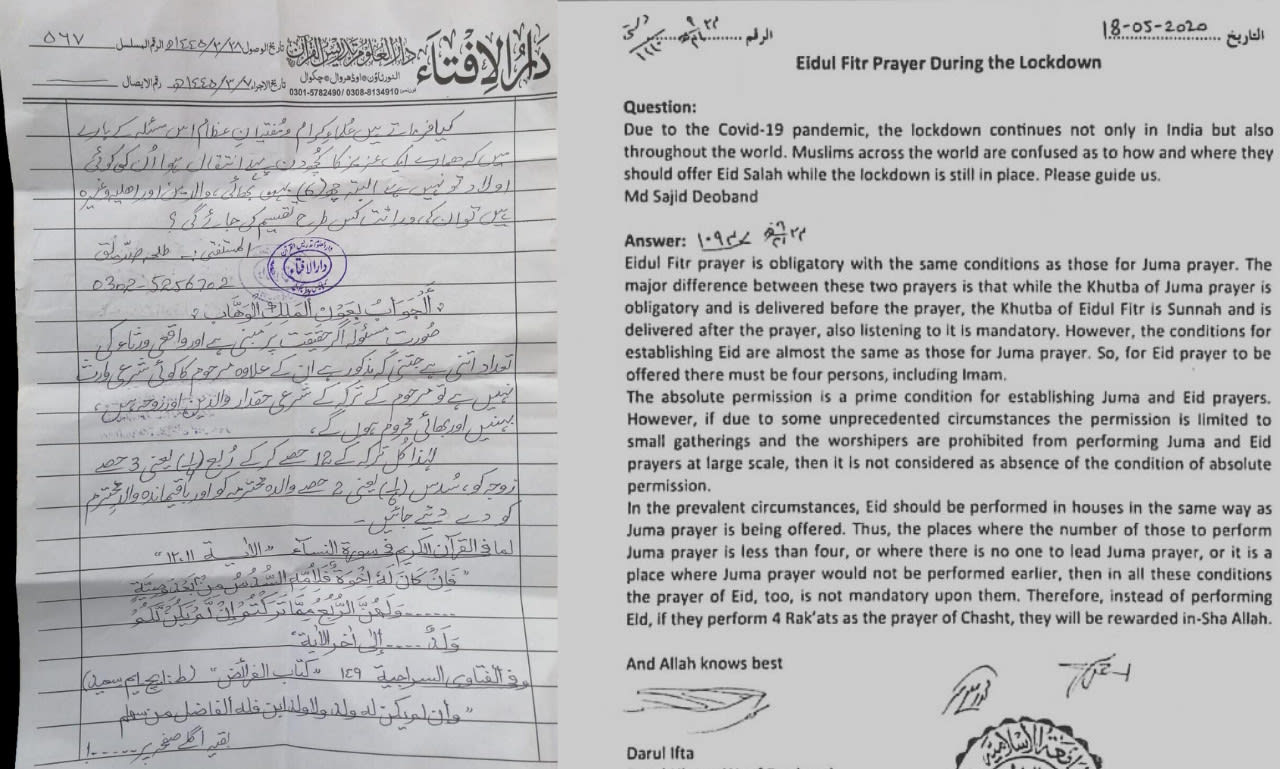 ۵۶۷
دَارُ الإِفْتَاء
دارالعلوم تدریس القرآن
تاریخ الوصول ۱۴۴۵/۲/۲۸ھ الرقم المسلسل
النور ٹاؤن اوڈھروال چکوال
تاریخ الاجراء ۱۴۴۵/۳/۷ھ رقم الایصال
0301-5782490/ 0308-8134910
کیا فرماتے ہیں علماءِ کرام و مفتیانِ عظام اس مسئلہ کے بارے
میں کہ ھمارے ایک عزیز کا کچھ دن پہلے انتقال ہوا اُن کی کوئی
اولاد تو نہیں ہے البتہ چھ (6) بہن بھائی، والدین اور اھلیہ وغیرہ
ہیں تو ان کی وراثت کس طرح تقسیم کی جائے گی؟
المستفتی:۔ طلحہ
دار الافتاء
0302-5256702
اَلْجَوَابُ بِعَوْنِ الْمَلِكِ الْوَهَّاب:
صُورتِ مسئولہ اگر حقیقت پر مبنی ہے اور واقعی ورثاء کی
تعداد اتنی ہے جتنی کہ مذکور ہے ان کے علاوہ مرحوم کا کوئی شرعی وارث
نہیں ہے تو مرحوم کے ترکہ کے شرعی حقدار والدین اور زوجہ ہیں،
بہنیں اور بھائی محروم ہوں گے،
لہٰذا کُل ترکہ کے 12 حصے کر کے رُبع (1/4) یعنی 3 حصے
زوجہ کو، سُدس (1/6) یعنی 2 حصے والدہ محترمہ کو اور باقیماندہ والدِ محترم
کو دے دیئے جائیں۔
لما فی القرآن الکریم فی سورۃ النسآء "الآیۃ ۱۱، ۱۲"
"فَإِنْ كَانَ لَهُ إِخْوَةٌ فَلِأُمِّهِ السُّدُسُ مِنْ بَعْدِ وَصِيَّةٍ
......وَلَهُنَّ الرُّبُعُ مِمَّا تَرَكْتُمْ إِنْ لَّمْ يَكُنْ لَّكُمْ
وَلَدٌ .... إلى آخر الآية"
وفی الفتاوی السراجیۃ ۱۴۹ "کتاب الفرائض" (ط: ایچ ایم سعید)
"وان لم یکن له ولد والولد ابن فله الفاضل من
بقیہ اگلے صفحہ پر .....!
الرقم
التاريخ 18-05-2020
Eidul Fitr Prayer During the Lockdown
Question:
Due to the Covid-19 pandemic, the lockdown continues not only in India but also
throughout the world. Muslims across the world are confused as to how and where they
should offer Eid Salah while the lockdown is still in place. Please guide us.
Md Sajid Deoband
Answer:
Eidul Fitr prayer is obligatory with the same conditions as those for Juma prayer. The
major difference between these two prayers is that while the Khutba of Juma prayer is
obligatory and is delivered before the prayer, the Khutba of Eidul Fitr is Sunnah and is
delivered after the prayer, also listening to it is mandatory. However, the conditions for
establishing Eid are almost the same as those for Juma prayer. So, for Eid prayer to be
offered there must be four persons, including Imam.
The absolute permission is a prime condition for establishing Juma and Eid prayers.
However, if due to some unprecedented circumstances the permission is limited to
small gatherings and the worshipers are prohibited from performing Juma and Eid
prayers at large scale, then it is not considered as absence of the condition of absolute
permission.
In the prevalent circumstances, Eid should be performed in houses in the same way as
Juma prayer is being offered. Thus, the places where the number of those to perform
Juma prayer is less than four, or where there is no one to lead Juma prayer, or it is a
place where Juma prayer would not be performed earlier, then in all these conditions
the prayer of Eid, too, is not mandatory upon them. Therefore, instead of performing
Eid, if they perform 4 Rak'ats as the prayer of Chasht, they will be rewarded in-Sha Allah.
And Allah knows best
Darul Ifta